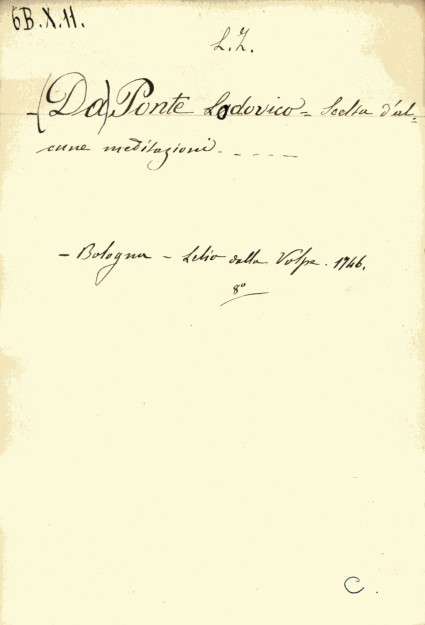 6B.X.11.
L.Z.
(Da) Ponte Lodovico = Scelta d'al=
cune meditazioni - - - -
- Bologna - Lelio dalla Volpe. 1746.
8°
C.